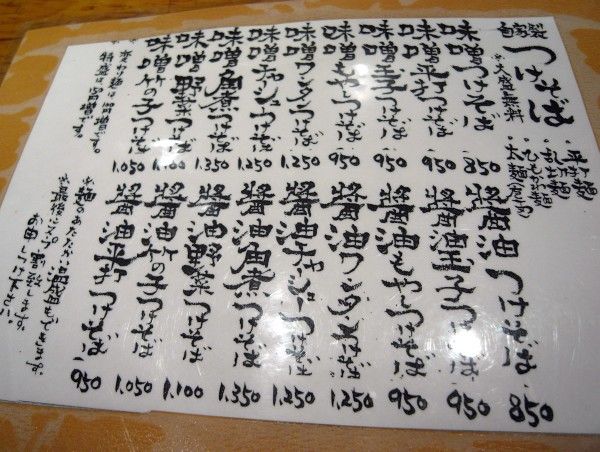 自家製
つけそば
※大盛無料
・平打麺
味噌つけそば 850
味噌平打つけそば 950
味噌玉子つけそば 950
味噌もやしつけそば 950
味噌ワンタンつけそば 1.250
味噌チャーシューつけそば 1.250
味噌角煮つけそば 1.350
味噌野菜つけそば 1.100
味噌竹の子つけそば 1.050
※変わり麺は 円増です。
特盛は150円増です。
醤油つけそば 850
醤油玉子つけそば 950
醤油もやしつけそば 950
醤油ワンタンつけそば 1.250
醤油チャーシューつけそば 1.250
醤油角煮つけそば 1.350
醤油野菜つけそば 1.100
醤油竹の子つけそば 1.050
醤油平打つけそば 950
※麺のあたたかい温盛もできます。
※最後にスープ割致します。
お申しつけ下さい。